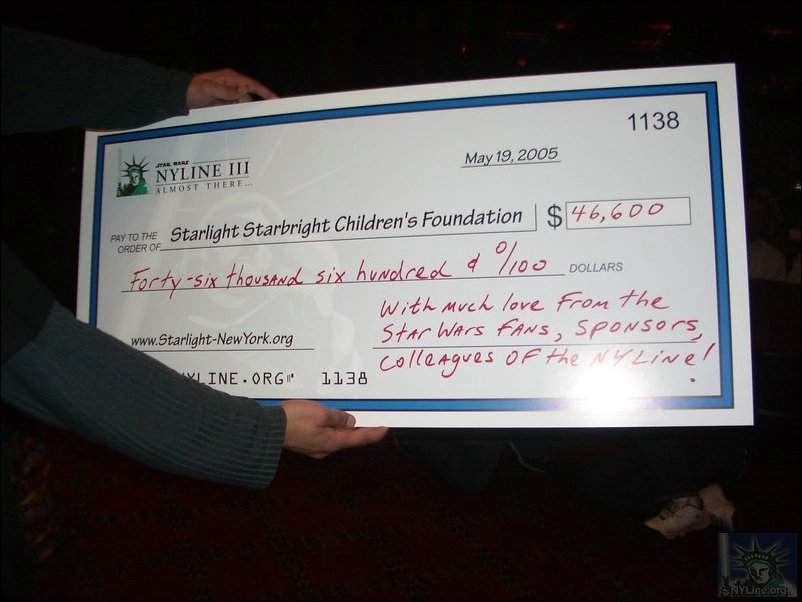 1138
STAR WARS
NYLINE III
ALMOST THERE...
May 19, 2005
PAY TO THE
ORDER OF
Starlight Starbright Children's Foundation
$ 46,600
Forty-six thousand six hundred & 0/100 DOLLARS
With much love From the
Star Wars Fans, Sponsors,
colleagues of the NYLine!
www.Starlight-NewYork.org
NYLINE.ORG⑈ 1138
NYLine.org